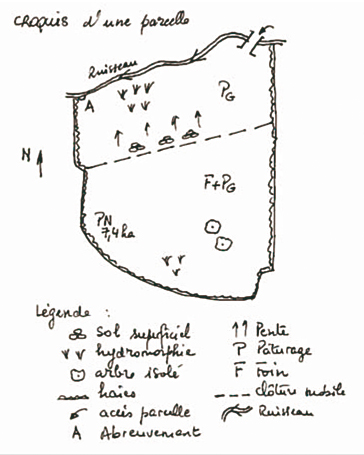 croquis d'une parcelle
Ruisseau
A
PG
N
F+PG
PN
7,4 ha
Légende :
sol superficiel
hydromorphie
arbre isolé
haies
accès parcelle
A Abreuvement
Pente
P Pâturage
F Foin
clôture mobile
Ruisseau